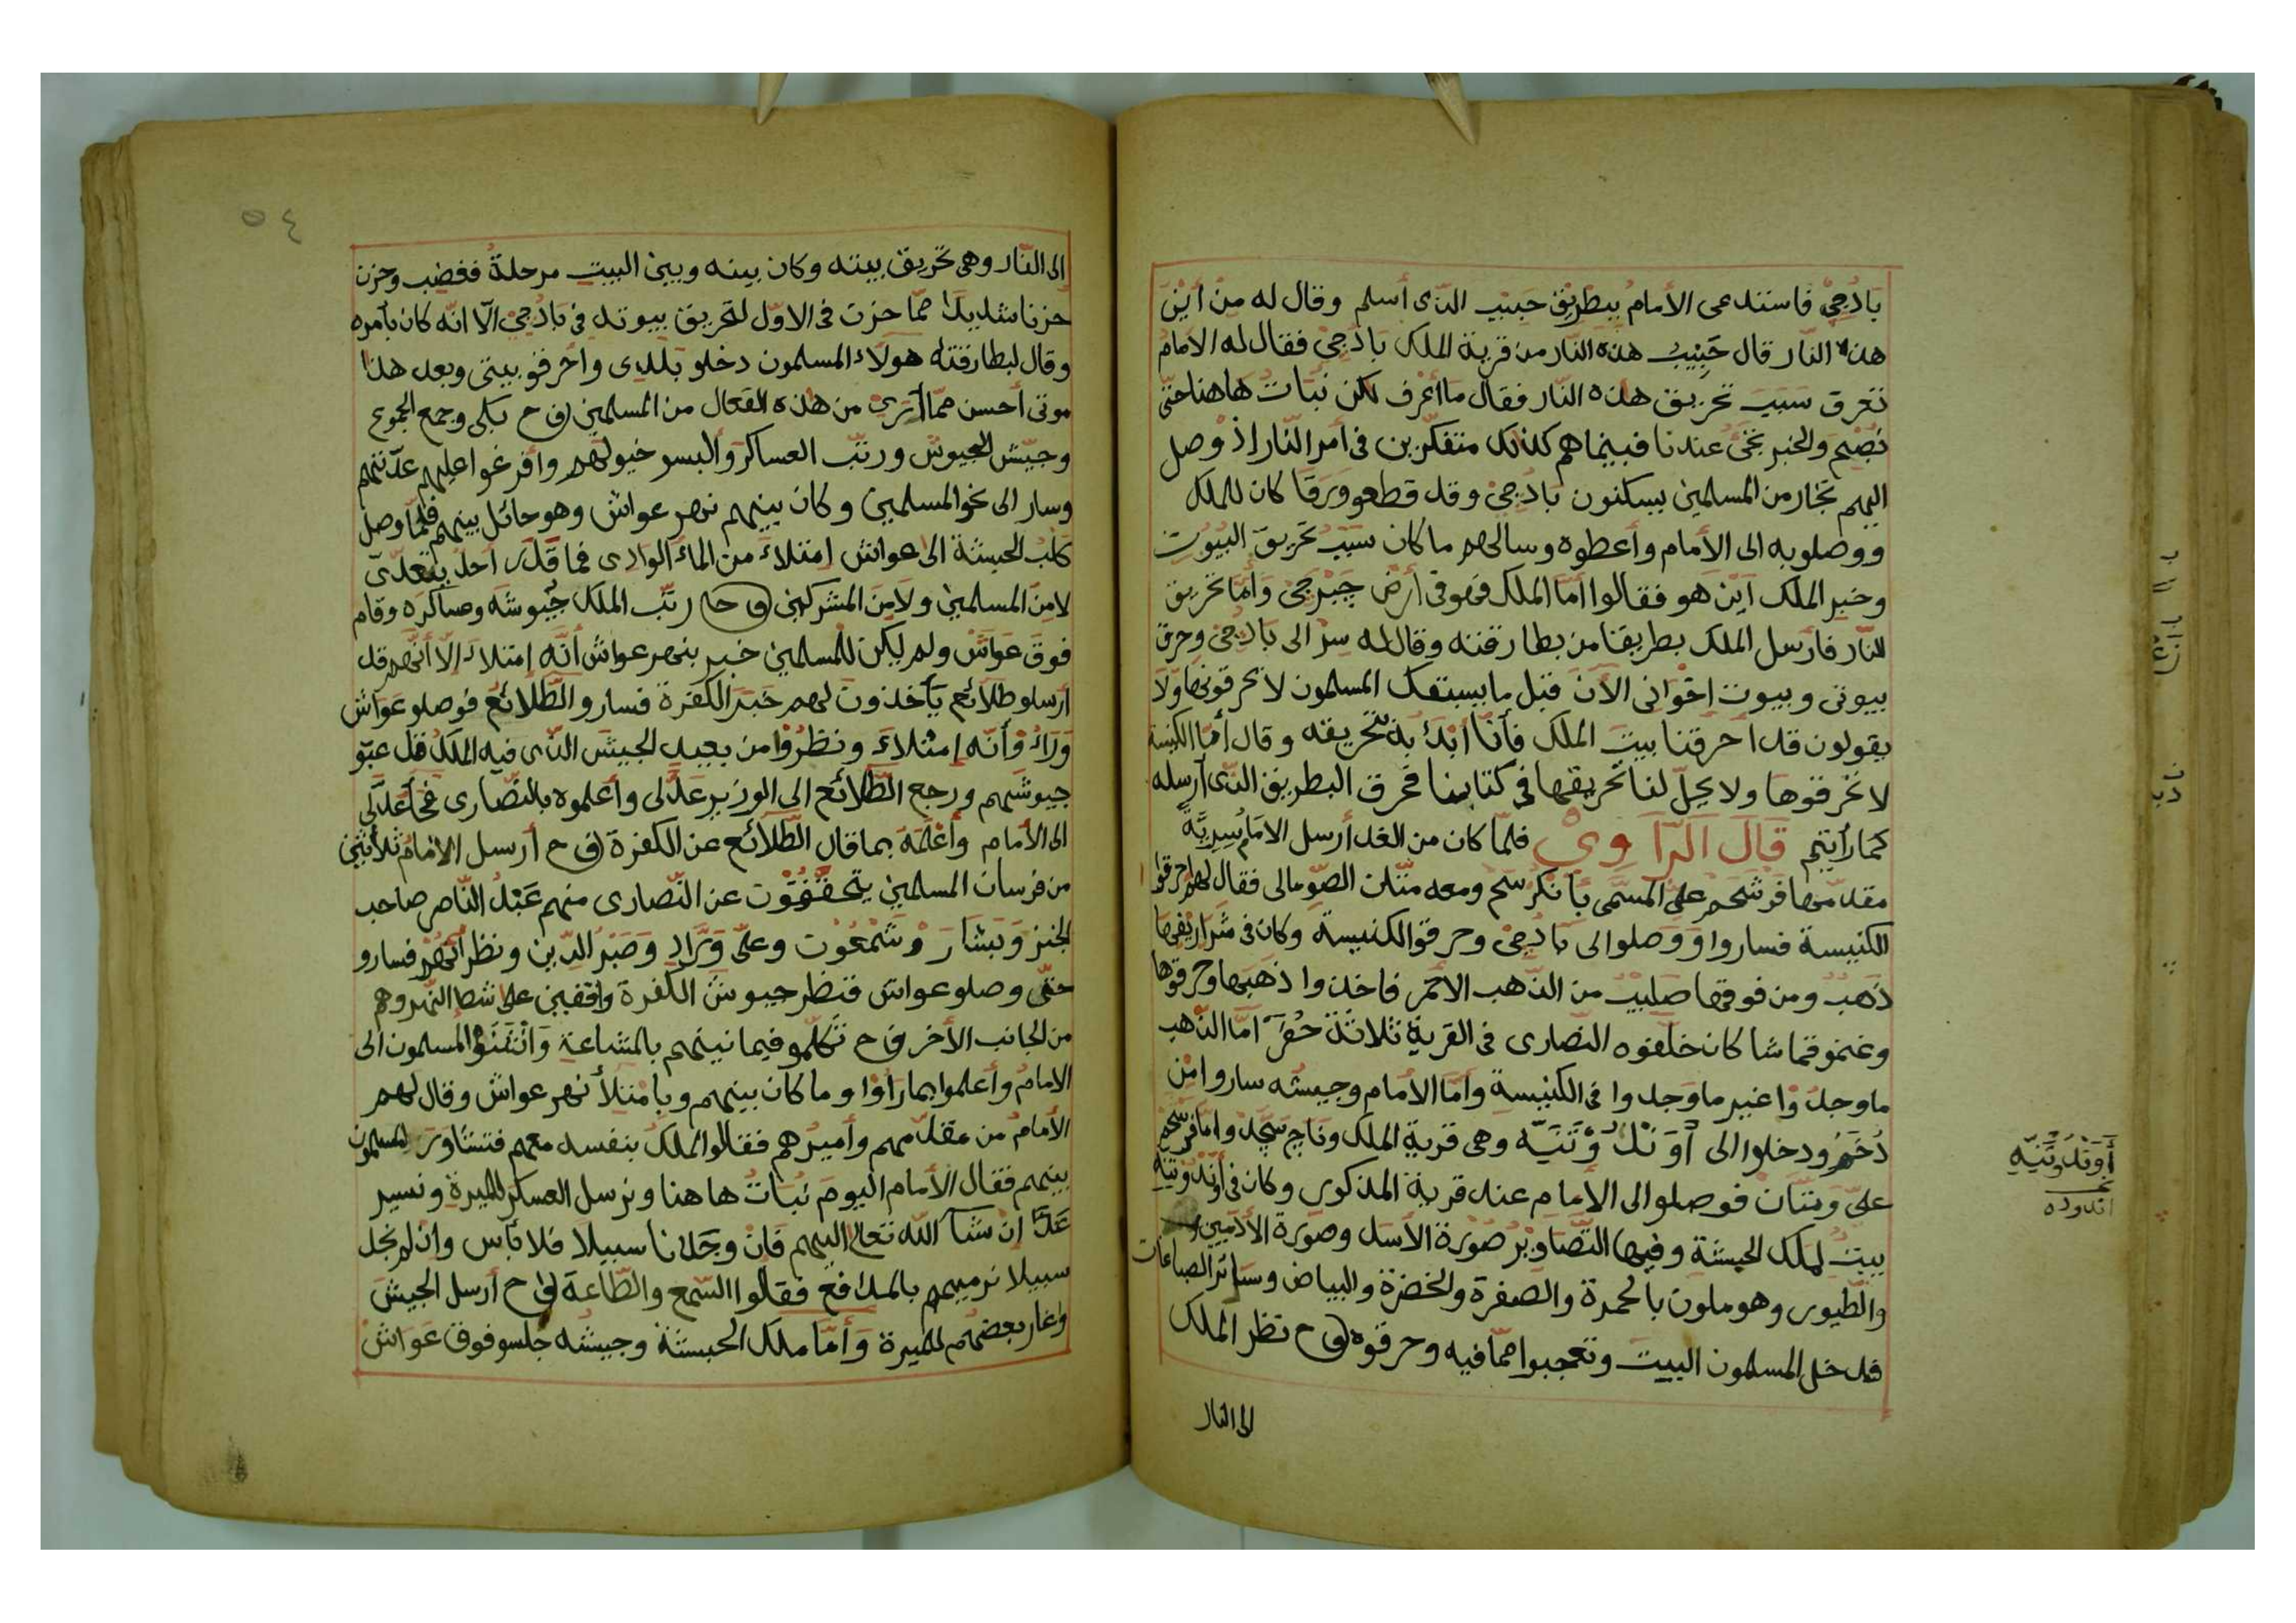 بَادُجِيْ فاستدعى الأمامُ ببطرِيْق حَبيْبِ الذّى أسلم وقال له من أيْن
هذه النّار قال حَبِيْبُ هذه النّار من قرية الملك بادُجيْ فقال له الأمامُ
نعرف سَبَبَ تحريق هذه النّار فقال ما أعْرف لكن نباتُ هاهنا حتّى
نُصْبِح والخبر يَجْيُ عندنا فبينما هم كذلك متفكّرين في أمر النّار إذْ وصل
اليهم تجّار من المسلمين يسكنون بادُجيْ وقد قطعو ورقا كان للملك
ووصلو به الى الأمام وأعطوه وسالهم ما كان سَبَبُ تحريق البُيُوت
وخبر الملك أيْن هو فقالوا أمّا الملك فهو فى أرْض جَبْرجىْ وَأمّا تحريق
النّار فأرسل الملك بطريقا من بطارقته وقال له سِرْ الى بادُجىْ وحرق
بيوتى وبيوت اخوانى الأن قبل ما يستفك المسلمون لا تحرقونها وَلا
يقولون قد أحرقنا بيتَ الملك فأنا أبْدَأ به بتحريقه وقال أمّا الكنيسة
لا تحْرقوها ولا يحِلّ لنا تحريقها فى كتابنا فحرق البطريق الذّى أرسله
كما رأيتم قَالَ اَلرَّاوِيْ فلمّا كان من الغد أرسل الامَامُ سِرِيّةً
مقدّمها فرشحم علىْ المسمّى بانكرسح ومعه متّان الصّومالى فقال لهم احرقوا
الكنيسة فساروا وَوَصلوا الى بادُجىْ وحرقوا الكنيسة وكان فى شراريفها
ذَهَبُ ومن فوقها صَلِيْبُ من الذّهب الأحمر فاخذوا ذهَبها وحرقوها
وغنمو قماشا كان خلّفوه النّصارى فى القرية ثلاثة حُفَرَ امّا الذّهب
ما وجدُوْا غير ما وَجدوا فى الكنيسة وأمّا الأمام وجيشُه سارو امن
دُخَمْ ودخلوا الى أَوَنْدُوْتَنِيَّه وهى قرية الملك وناج سَجَد وامّا فرشحم
علىّ ومتّان فوصلوا الى الأمام عند قرية المذكور وكان فى أوَنْدُوْتَنِيَّه
بيتُ لملك الحبشة وفيها التّصاويْر صُوْرة الأسد وصورة الأدميين
والطّيور وهو ملون بالحمرة والصفرة والخضرة والبياض وسَائر الصباغات
فدخل المسلمون البيت وتعجبوا ممّا فيه وحرقوه ق ح نظر الملك
الى النار
أَوَنْدُوْتَنِيَّهِ
اندوده
٥٤
الى النّار وهى تحريق بيته وكان بينه وبين البيت مرحلةً فغضب وحزن
حزنا شديدًا ممّا حزن فى الاوّل لتحريق بيوته فى بادُجىْ الّا انّه كان بأمره
وقال لبطارقته هولاء المسلمون دخلو بلدى واحرقو بيتى وبعد هذا
موتى أحسن ممّا أرى من هذه الفعال من المسلمين ق ح بكى وجمع الجموع
وجيّش الجيوش ورتّب العساكر وألبسو خيولهم وافرغوا عليهم عدّتهم
وسار الى نحو المسلمين وكان بينهم نهر عواش وهو حائل بينهم فلمّا وصل
كلب الحبشة الى عواش امتلاء من الماء الوادى فما قدر أحدُ يتعدّى
لا منَ المسلمين ولا مِنَ المشركين ق ح رتّب الملك جُيوشَه وعساكرَه وقام
فوق عَوَاشْ ولم يكن للمسلمين خبر بنهر عواش أنّه إمتلاء إلّا أنّهم قد
أرسلو طلائع يأخذون لهم خَبَرَ الكفرة فسارو الطّلائع فوصلو عَوَاش
وَرَاوْ أنّه إمْتلاءَ ونظرُوْا من بعيد الجيشَ الذّى فيه الملك قد عبّو
جيوشهم ورجع الطّلائع الى الوزير عَدّلى وأعلموه بالنّصارى فجأ عَدّلى
الى الأمام وأعْلَمَهَ بما قال الطّلائع عن الكفرة ق ح أرسل الامَام ثلاثين
من فرسان المسلمين يتحقّقُوْن عن النّصارى منهم عَبْدُ النّاصر صاحب
الجنز وَبَشارَ وْشَمْعُوْن وعلىّ وَرَّادِ وَصَبْرُ الدّين ونظرائهم فسارو
حتّى وصلو عواش فنظر جيوش الكفرة واقفين على شط النّهر وهم
من الجانب الأخر ق ح تكلّمو فيما بينهم بالمشاعة وَانْثَنَوْا المسلمون الى
الامامُ وأعلموا بما رأوْا وما كان بينهم وبامْتلأ نهر عواش وقال لهم
الأمامُ من مقدّمهم وأميرُهم فقالوا الملكُ بنفسه معهم فتشاوَرَ المسلمون
بينهم فقال الأمام اليومَ نُبَاتُ هاهنا ونرسل العسكر للميرة ونسير
غَدًا انْ شآ اللّه تعالى اليهم فانْ وجَدْنا سبيلا فلا بَأس وان لم نجد
سبيلا نرميهم بالمدافع فقالوا السّمع والطّاعة ق ح أرسل الجيش
واغار بعضهم للميرة وَأمّا ملك الحبشة وجيشه جلسو فوق عَوَاش